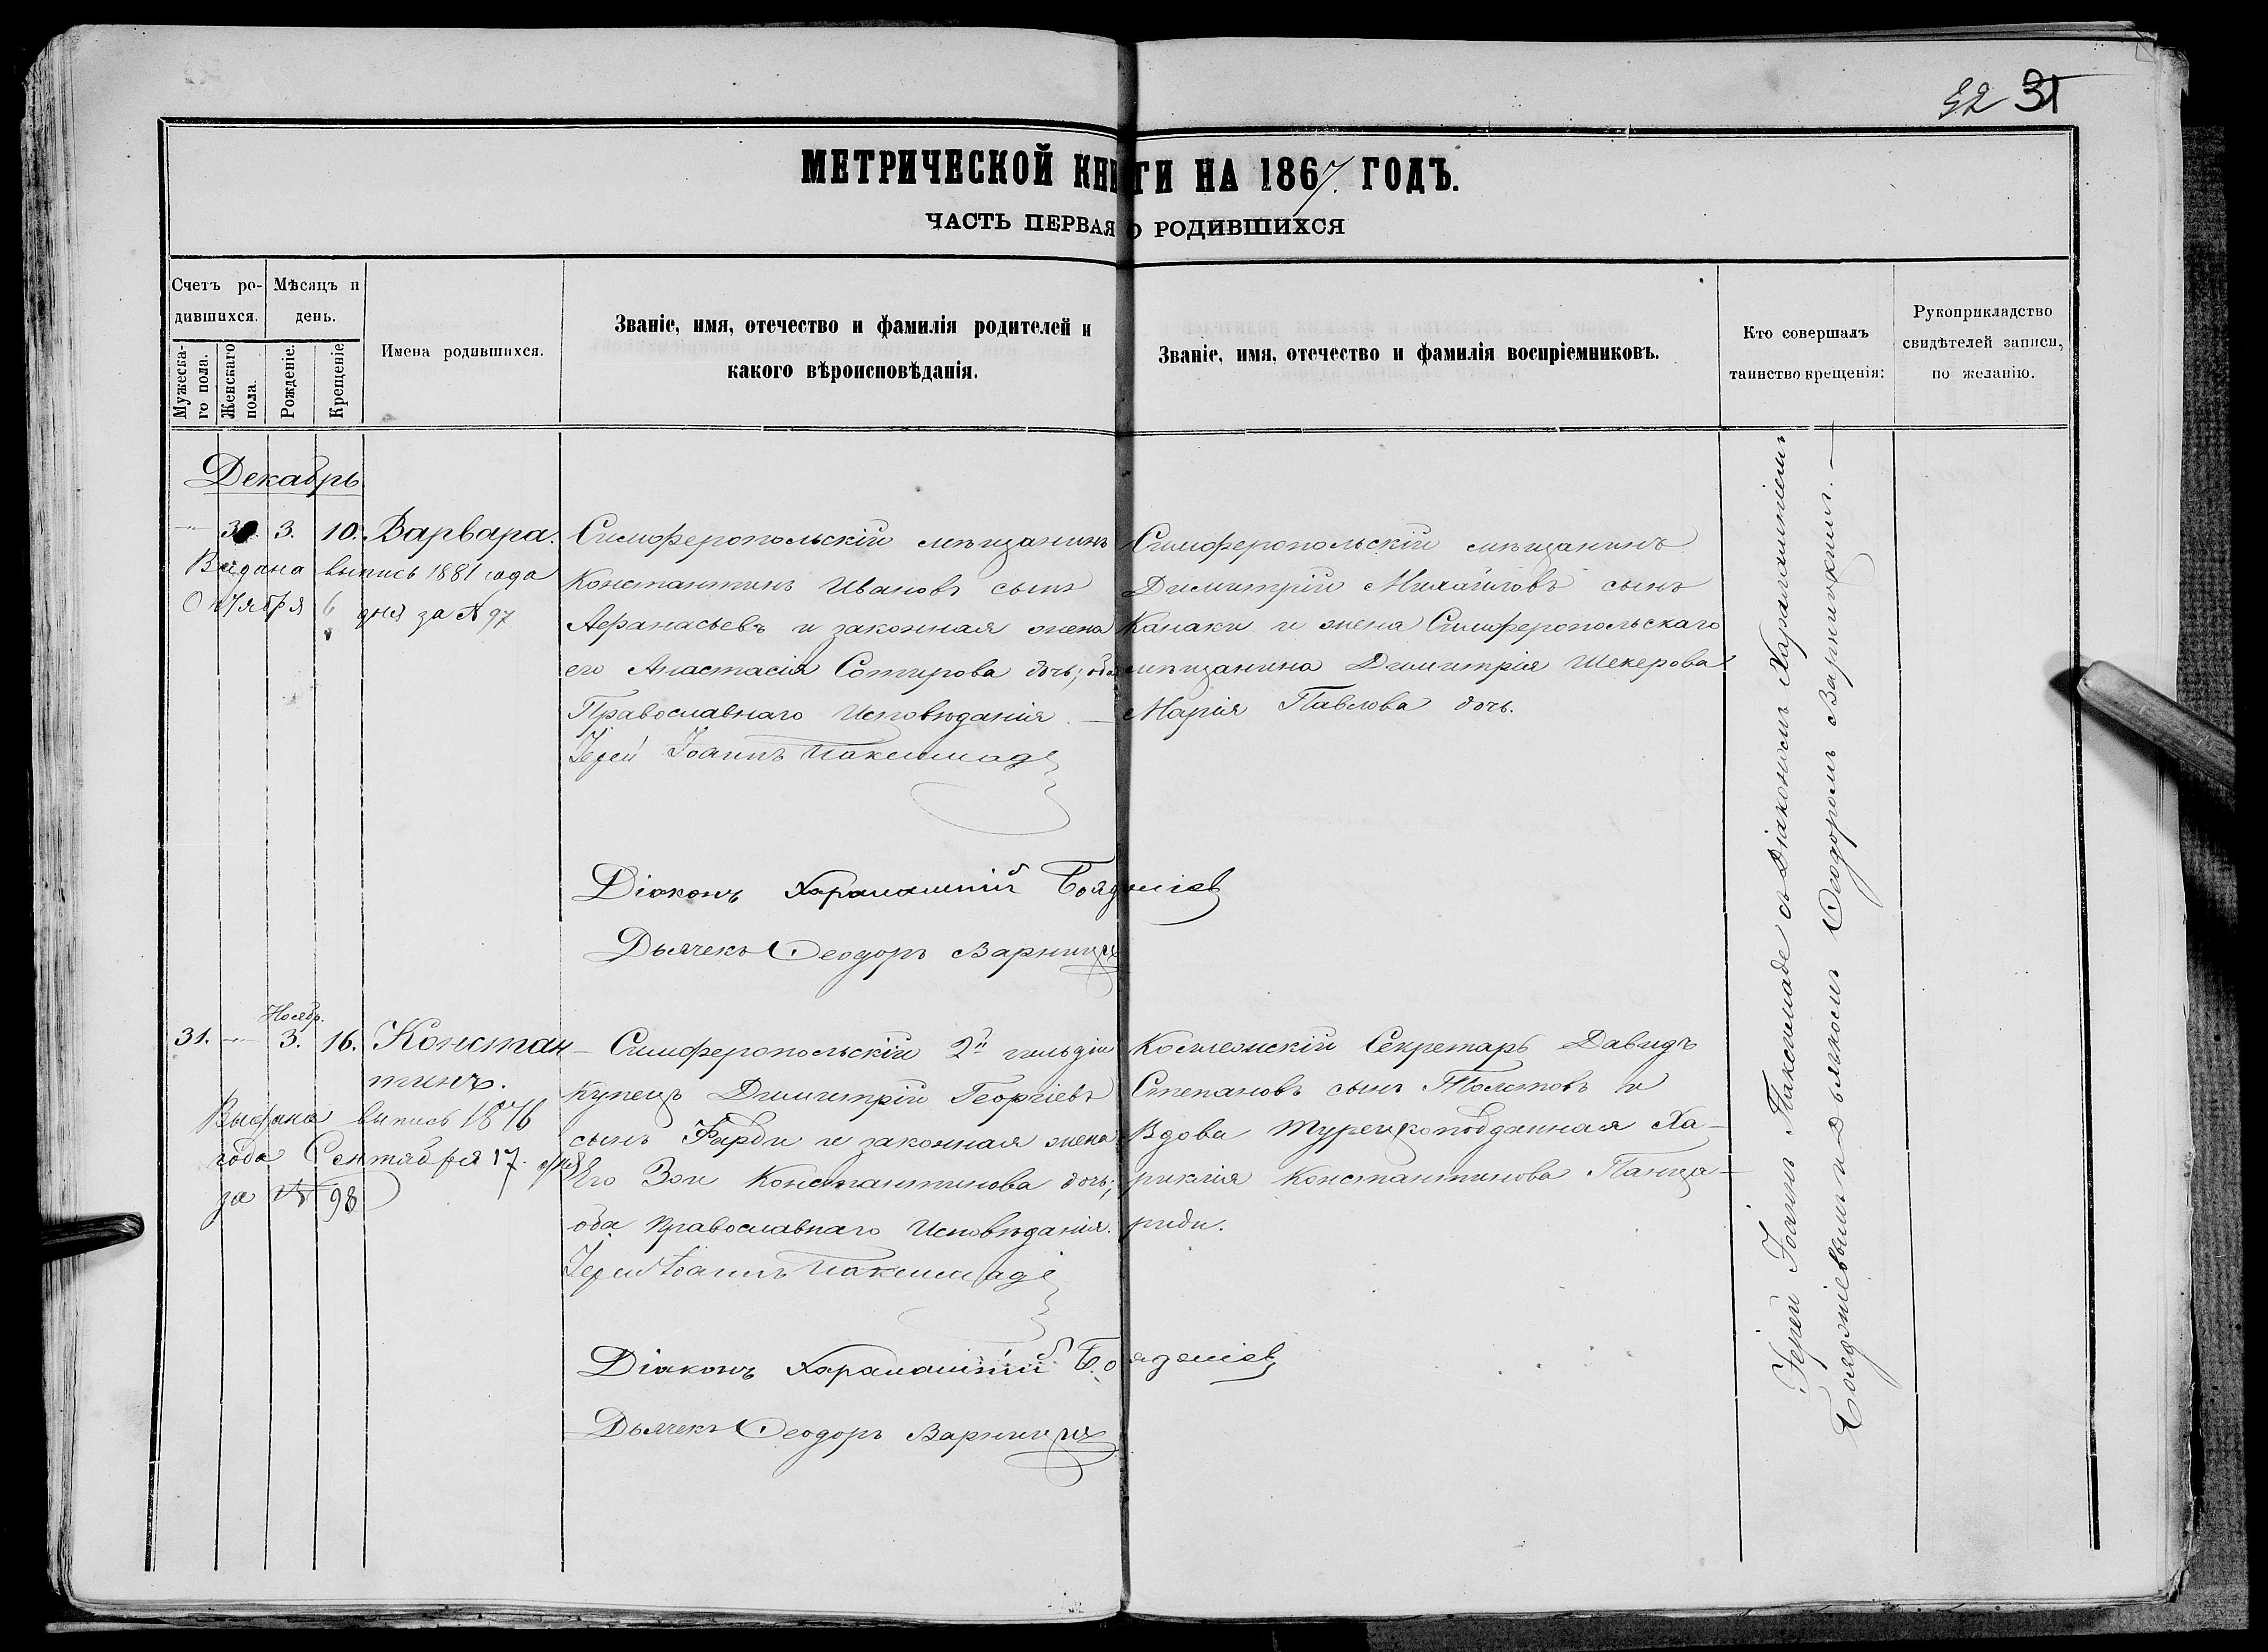 32 31
МЕТРИЧЕСКОЙ КНИГИ НА 1867. ГОДЪ.
ЧАСТЬ ПЕРВАЯ О РОДИВШИХСЯ
Счетъ ро-
дившихся.
Мужеска-
го пола.
Женскаго
пола.
Мѣсяцъ и
день.
Рожденіе.
Крещеніе
Имена родившихся.
Званіе, имя, отечество и фамилія родителей и
какого вѣроисповѣданія.
Званіе, имя, отечество и фамилія воспріемниковъ.
Кто совершалъ
таинство крещенія:
Рукоприкладство
свидѣтелей записи,
по желанію.
Декабрь
— 30. 3. 10. Варвара.
Выдана выпись 1881 года
Октября 6 дня за № 97
Симферопольскій мѣщанинъ
Константинъ Ивановъ сынъ
Афанасьевъ и законная жена
его Анастасія Сотирова дочь; оба
Православнаго Исповѣданія. —
Іерей Іоаннъ Паксимаде
Діаконъ Харалампій Бояджіев
Дьячекъ Ѳеодоръ Варницкій
Симферопольскій мѣщанинъ
Димитрій Михайловъ сынъ
Канаки и жена Симферопольскаго
мѣщанина Димитрія Шекерова
Марія Павлова дочь.
31. — Ноябр. 3. 16. Констан-
тинъ.
Выдана выпись 1876
года Сентября 17. дня
за № 98
Симферопольскій 2й гильдіи
купецъ Димитрій Георгіевъ
сынъ Фарди и законная жена
Его Зои Константинова дочь;
оба Православнаго Исповѣданія.
Іерей Іоаннъ Паксимаде
Діаконъ Харалампій Бояджіев
Дьячекъ Ѳеодоръ Варницкій
Коллежскій Секретарь Давидъ
Степановъ сынъ Толстовъ и
Вдова Турецкоподданная Ха-
риклія Константинова Панца-
риди.
Іерей Іоаннъ Паксимаде съ Діакономъ Харалампіемъ
Бояджіевымъ и Дьячкомъ Ѳеодоромъ Варницкимъ. —